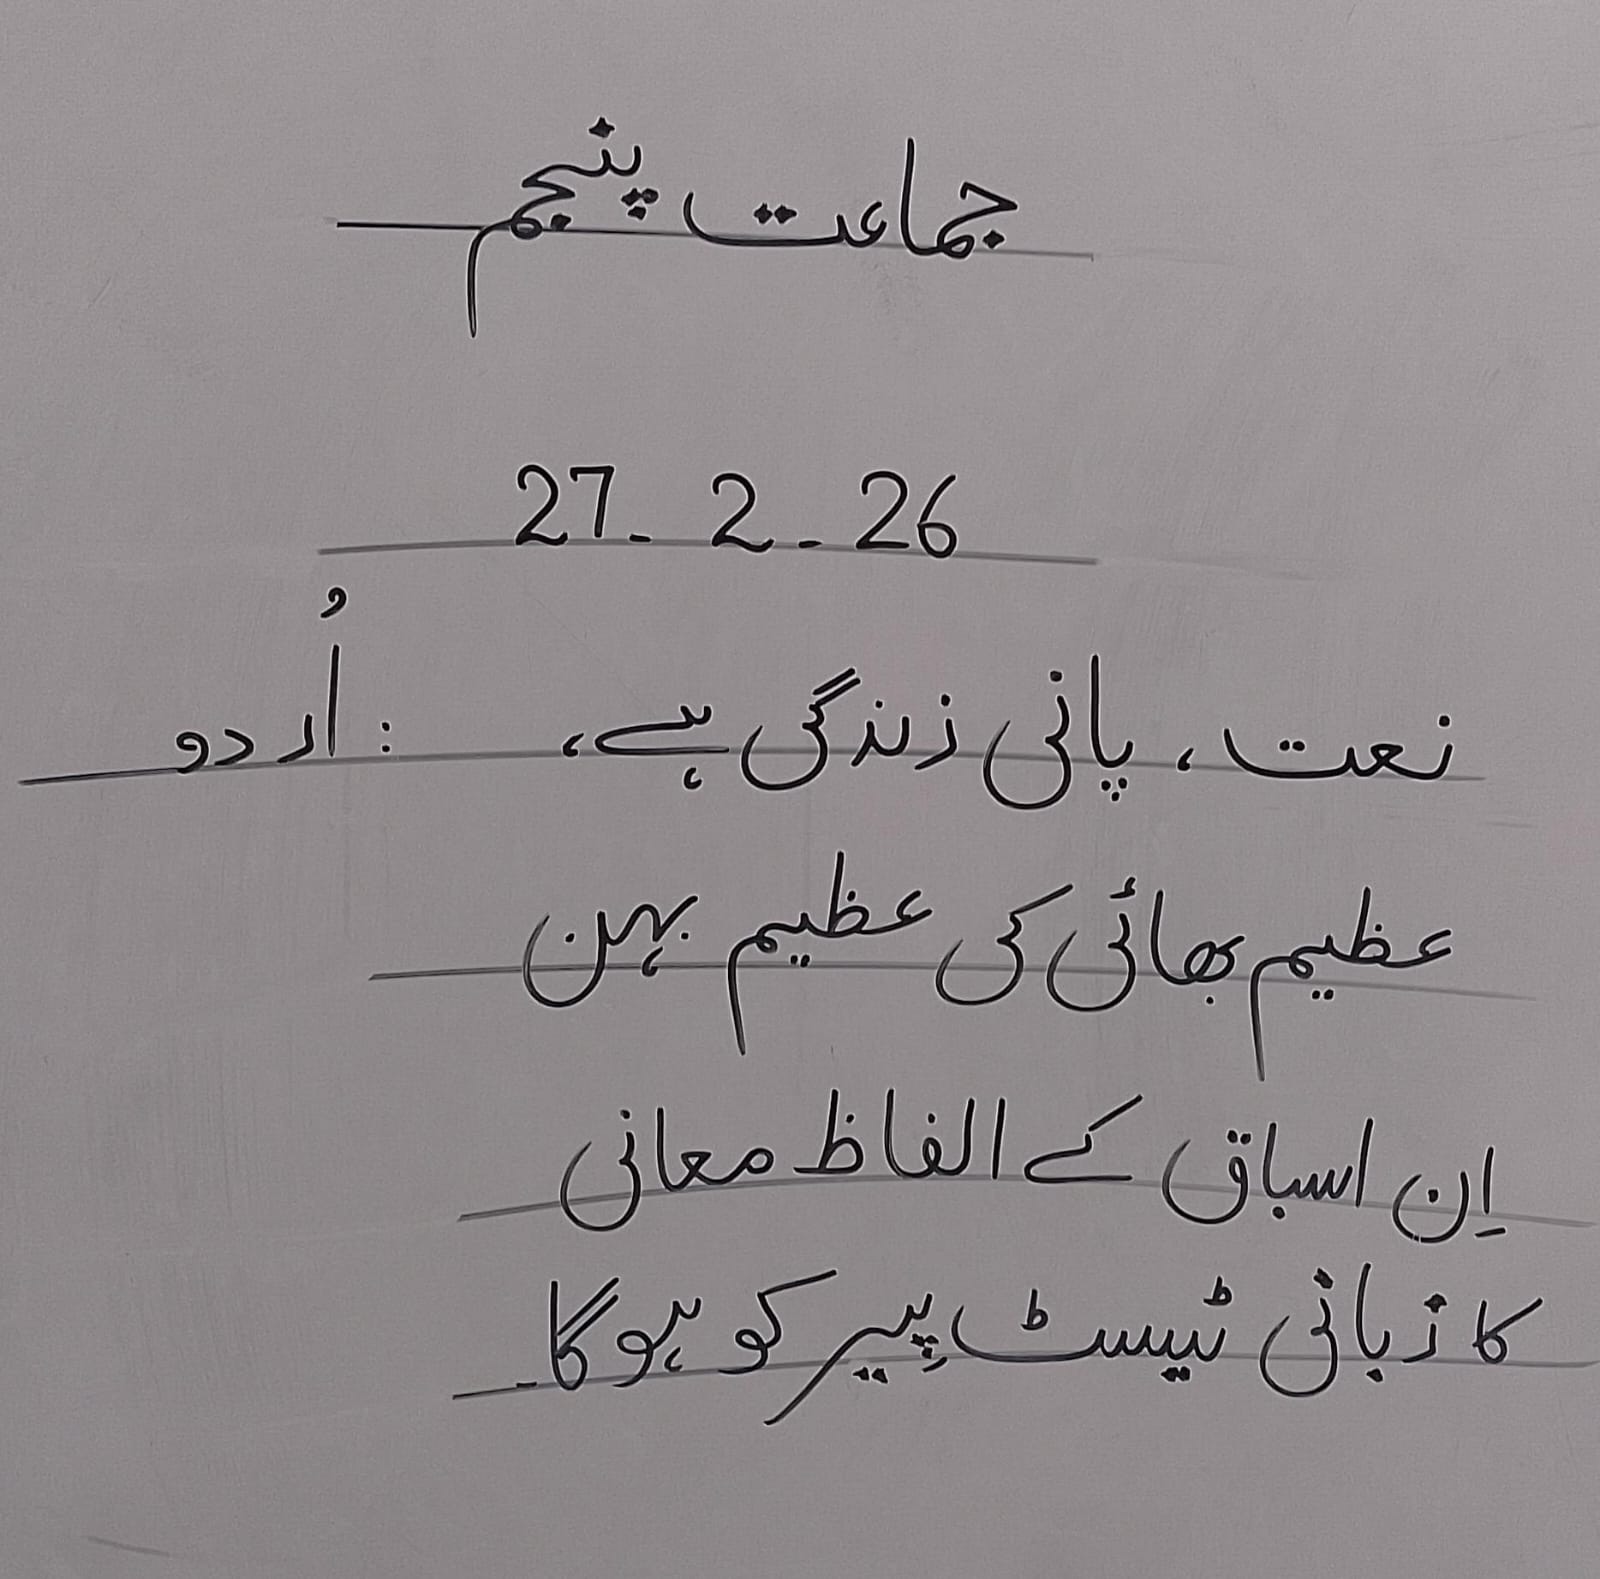 جماعت پنجم
27-2-26
نعت، پانی زندگی ہے، :اُردو
عظیم بھائی کی عظیم بہن
اِن اسباق کے الفاظ معانی
کا زبانی ٹیسٹ پِیر کو ہوگا۔